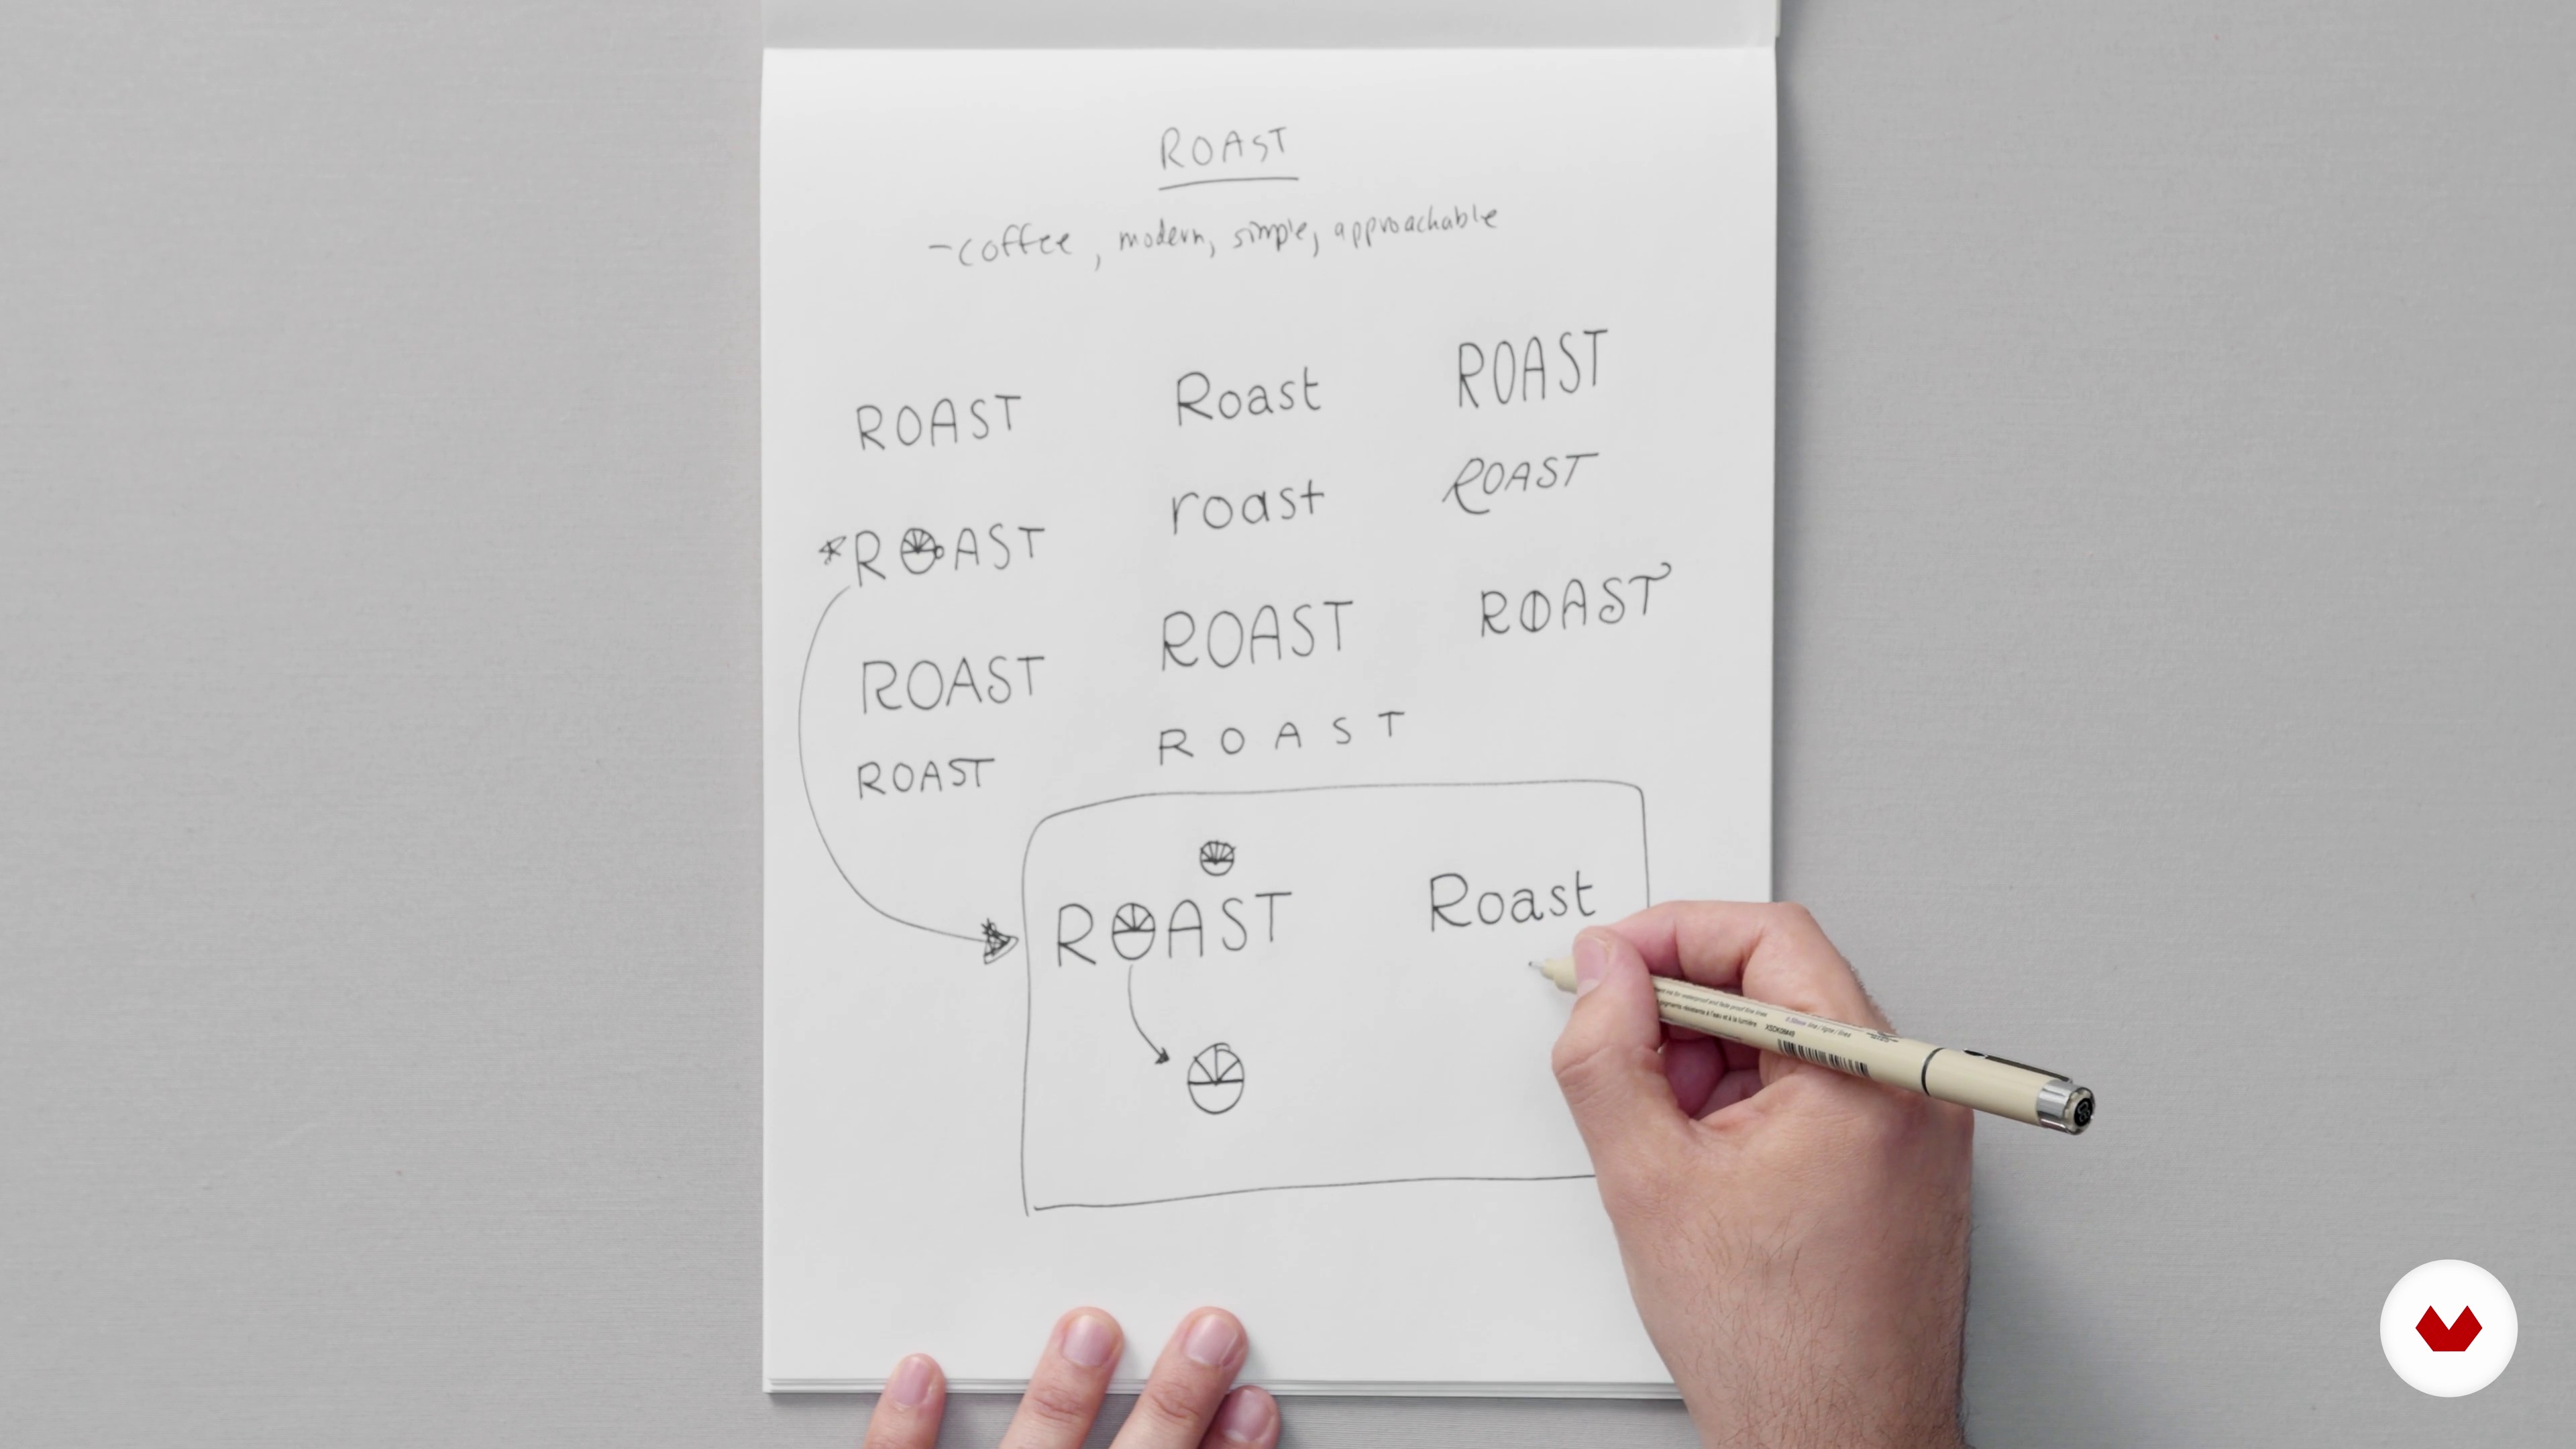 ROAST
-coffee, modern, simple, approachable
ROAST Roast ROAST
ROAST roast ROAST
ROAST ROAST ROAST
ROAST ROAST
ROAST Roast